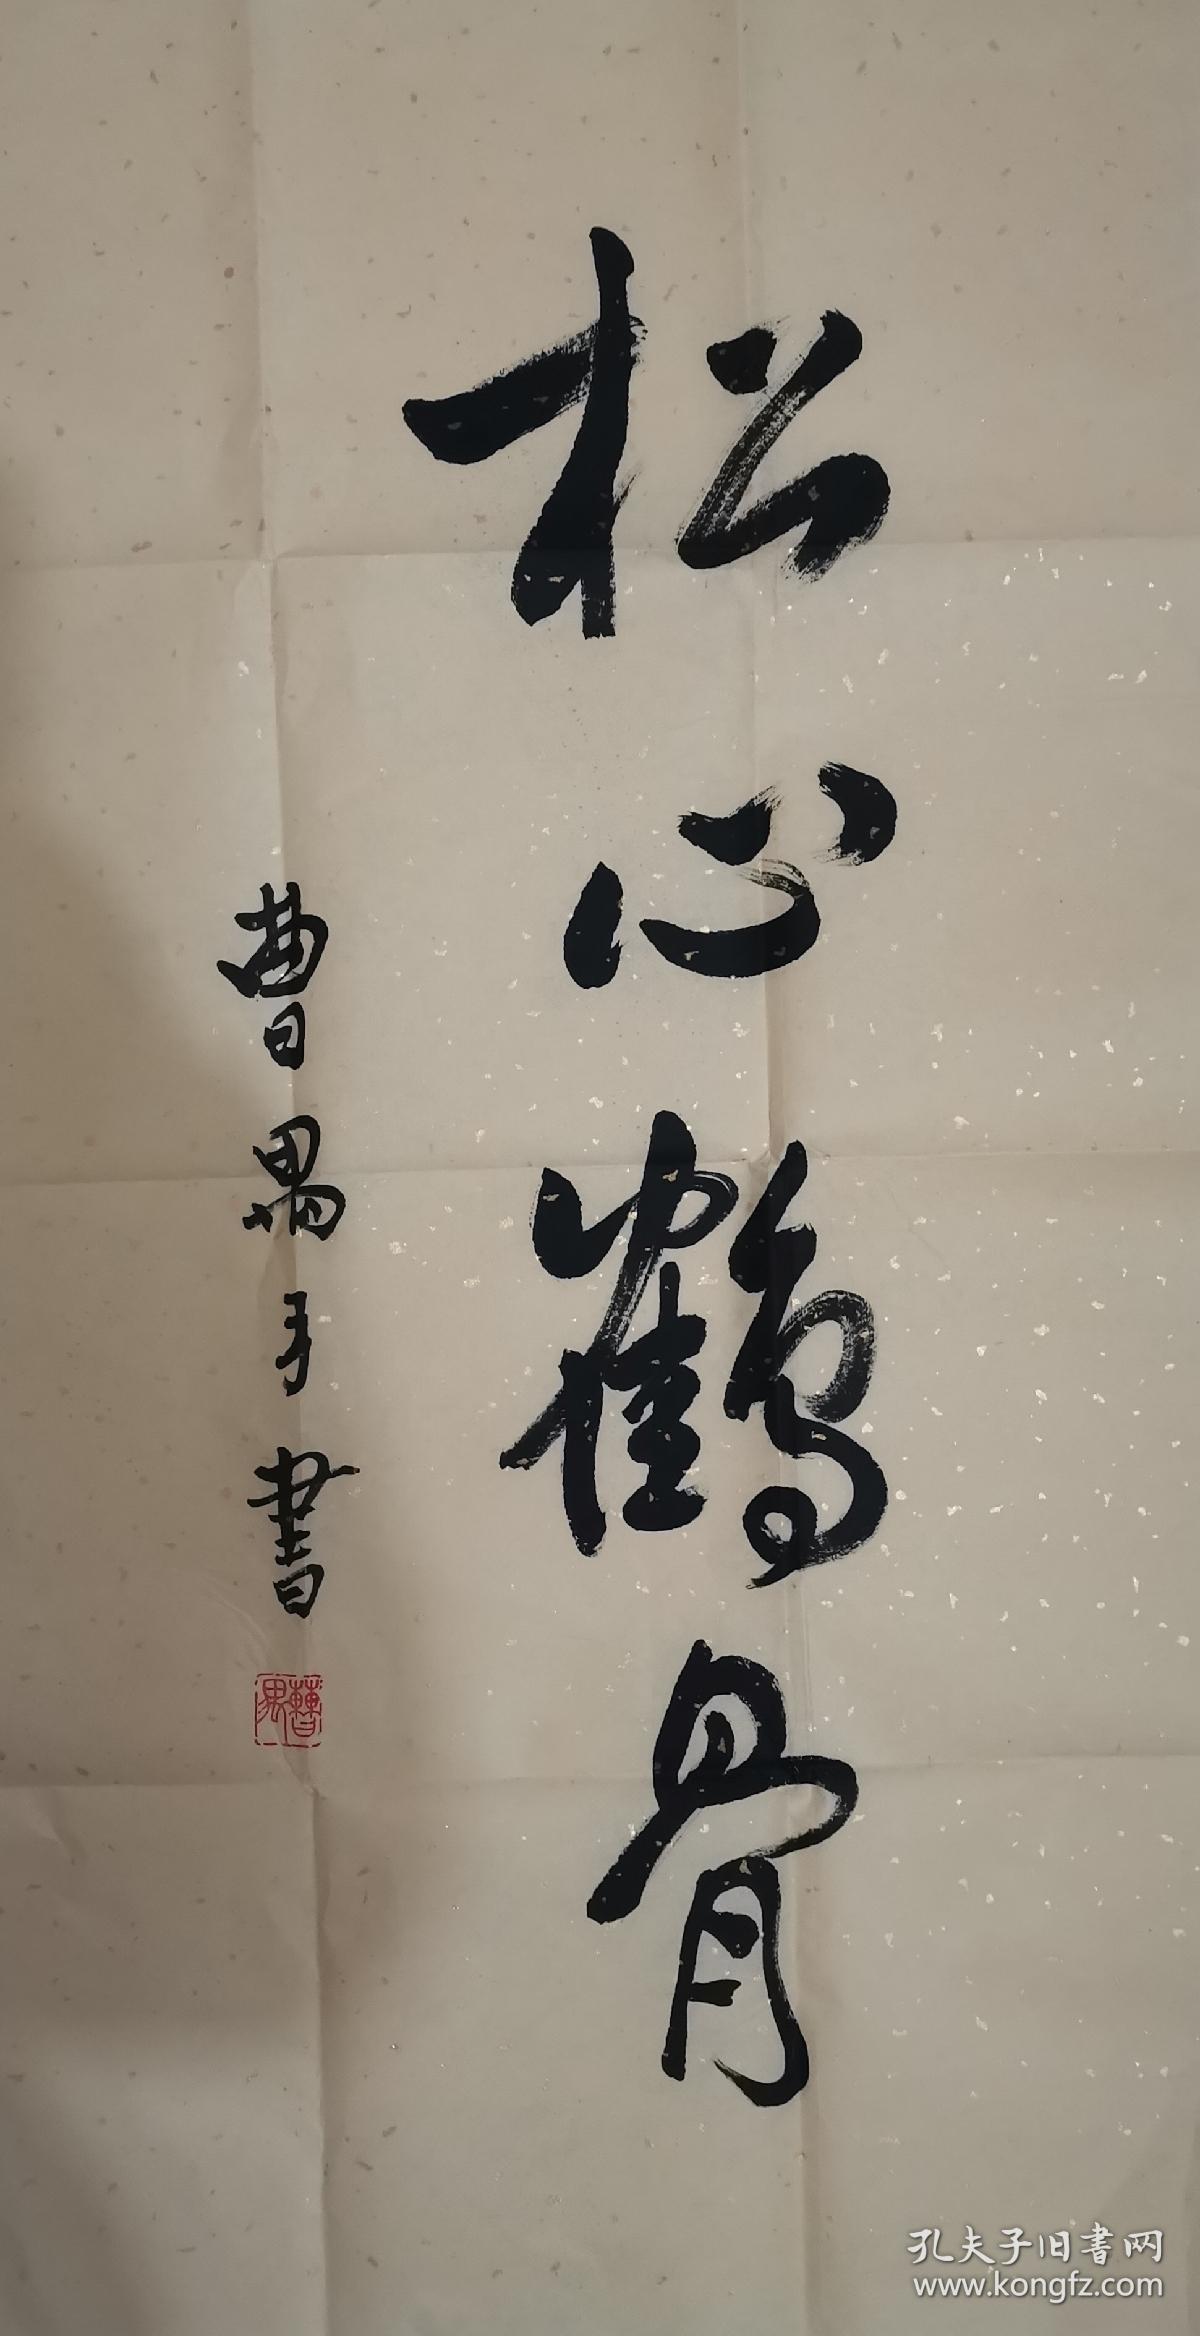 松心鹤骨
曹禺手書
曹禺
孔夫子旧書网
www.kongfz.com